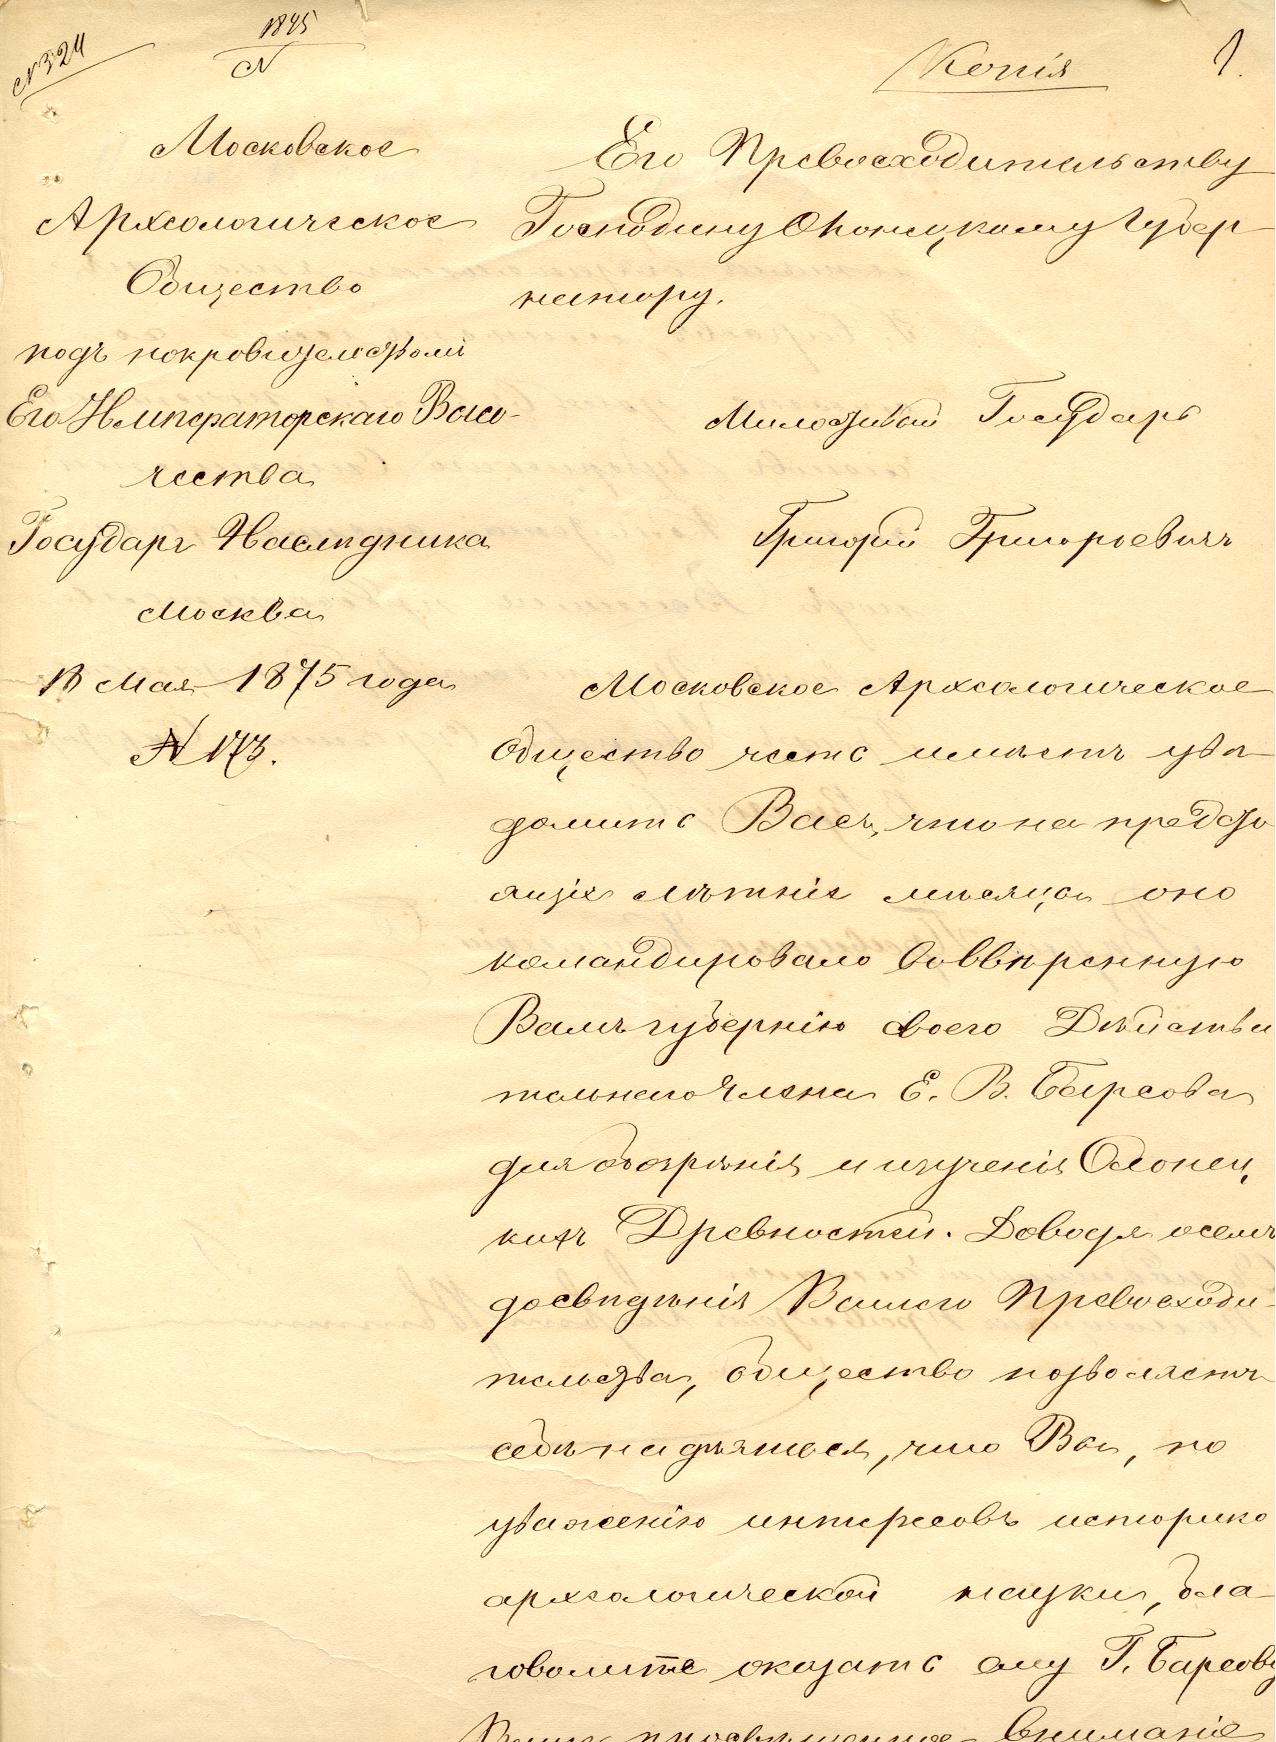 № 324
1875
№
Копія
1.
Московское
Археологическое
Общество
подъ покровительствомъ
Его Императорскаго Высо-
чества
Государя Наслѣдника
Москва
18 Мая 1875 года
№ 173.
Его Превосходительству
Господину Олонецкому Губер-
натору.
Милостивый Государь
Григорій Григорьевичъ
Московское Археологическое
Общество честь имѣетъ уве
домить Васъ, что на предсто
ящіе лѣтніе мѣсяцы оно
командировало во ввѣренную
Вамъ губернію своего Дѣйстви
тельнаго Члена Е. В. Барсова
для обозрѣнія и изученія Олонец
кихъ Древностей. Доводя о семъ
до свѣдѣнія Вашего Превосходи-
тельства, общество позволяетъ
себѣ надѣяться, что Вы, по
уваженію интересовъ историко
археологической науки, бла
говолите оказать ему Г. Барсову
Ваше просвѣщенное вниманіе